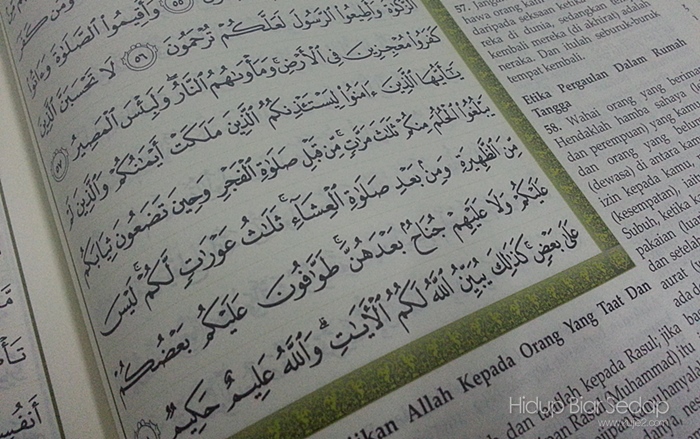 وَأَقِيمُوا الصَّلَوٰةَ وَءَاتُوا
الزَّكَوٰةَ وَأَطِيعُوا الرَّسُولَ لَعَلَّكُمْ تُرْحَمُونَ ٥٦ لَا تَحْسَبَنَّ الَّذِينَ
كَفَرُوا مُعْجِزِينَ فِى الْأَرْضِ وَمَأْوَىٰهُمُ النَّارُ وَلَبِئْسَ الْمَصِيرُ ٥٧
يَٰٓأَيُّهَا الَّذِينَ ءَامَنُوا لِيَسْتَـْٔذِنكُمُ الَّذِينَ مَلَكَتْ أَيْمَٰنُكُمْ وَالَّذِينَ
يَبْلُغُوا الْحُلُمَ مِنكُمْ ثَلَٰثَ مَرَّٰتٍ مِّن قَبْلِ صَلَوٰةِ الْفَجْرِ وَحِينَ تَضَعُونَ ثِيَابَكُم
مِّنَ الظَّهِيرَةِ وَمِنۢ بَعْدِ صَلَوٰةِ الْعِشَآءِ ثَلَٰثُ عَوْرَٰتٍ لَّكُمْ لَيْسَ
عَلَيْكُمْ وَلَا عَلَيْهِمْ جُنَاحٌۢ بَعْدَهُنَّ طَوَّٰفُونَ عَلَيْكُم بَعْضُكُمْ
عَلَىٰ بَعْضٍ كَذَٰلِكَ يُبَيِّنُ اللَّهُ لَكُمُ الْءَايَٰتِ وَاللَّهُ عَلِيمٌ حَكِيمٌ
57. Jangan
bawa orang kafir
daripada seksaan ketika
reka di dunia, sedangkan
kembali mereka (di akhirat) adalah
neraka. Dan itulah seburuk-buruk
tempat kembali.
Etika Pergaulan Dalam Rumah
Tangga
58. Wahai orang yang
Hendaklah hamba sahaya
dan perempuan) yang
dan orang yang
(dewasa) di antara
izin kepada
(kesempatan), iaitu
Subuh, ketika
pakaian
dan
aurat
Allah Kepada Orang Yang Taat Dan
dan taatlah kepada Rasul; jika
Muhammad) itu
Hidup Biar Sedap